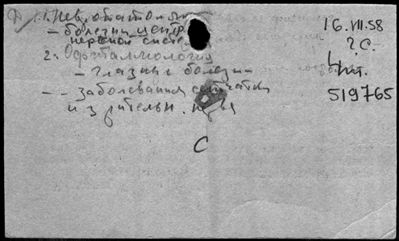 1. Невропатология
- болезни центр.
нервной систе
2. Офтальмология
- глазные болезни
- - заболевания сетчатки
и зрительн. нерва
16.VII.58
2 С.
4 пт.
519765
С